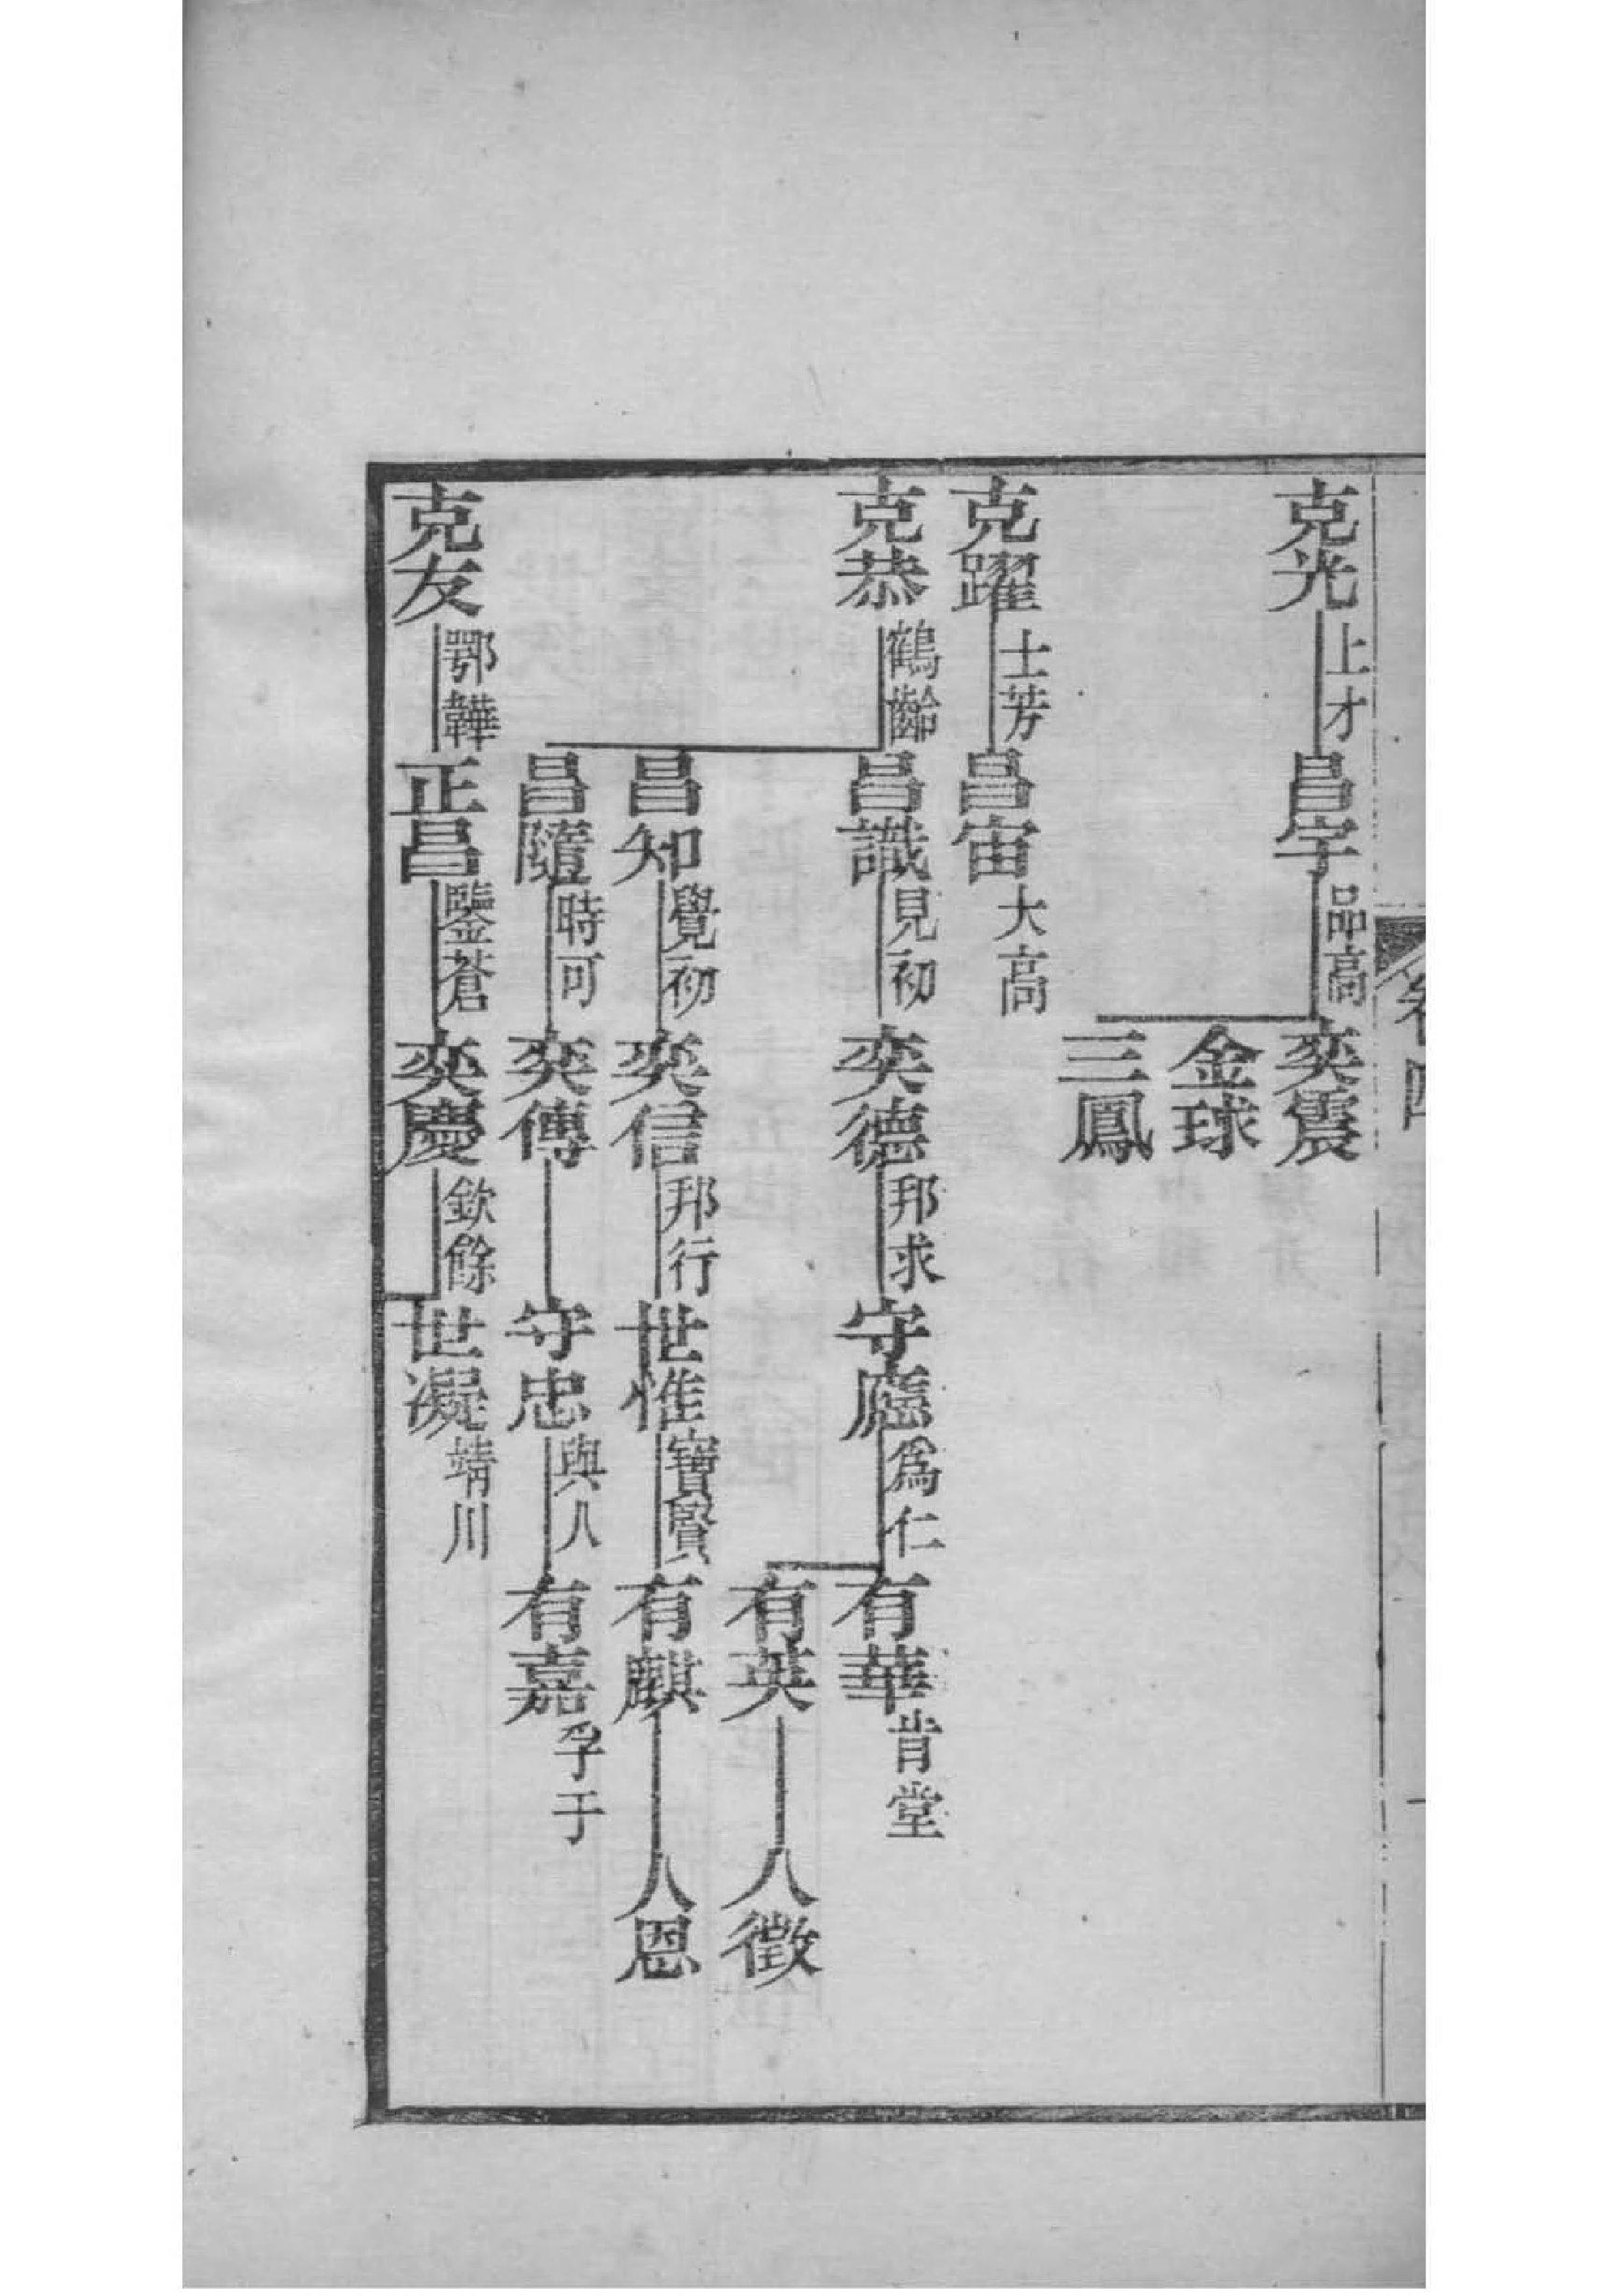 卷四
克光 上才 昌宇 品高 奕震
金球
三鳳
克躍 士芳 昌宙 大高
克恭 鶴齡 昌識 見初 奕德 邦求 守應 為仁 有華 肯堂
有英 人徵
昌知 覺初 奕信 邦行 世惟 寶賢 有麒 人恩
昌隨 時可 奕傅 守忠 與人 有嘉 孚于
克友 鄂韡 正昌 鑒蒼 奕慶 欽餘 世凝 靖川